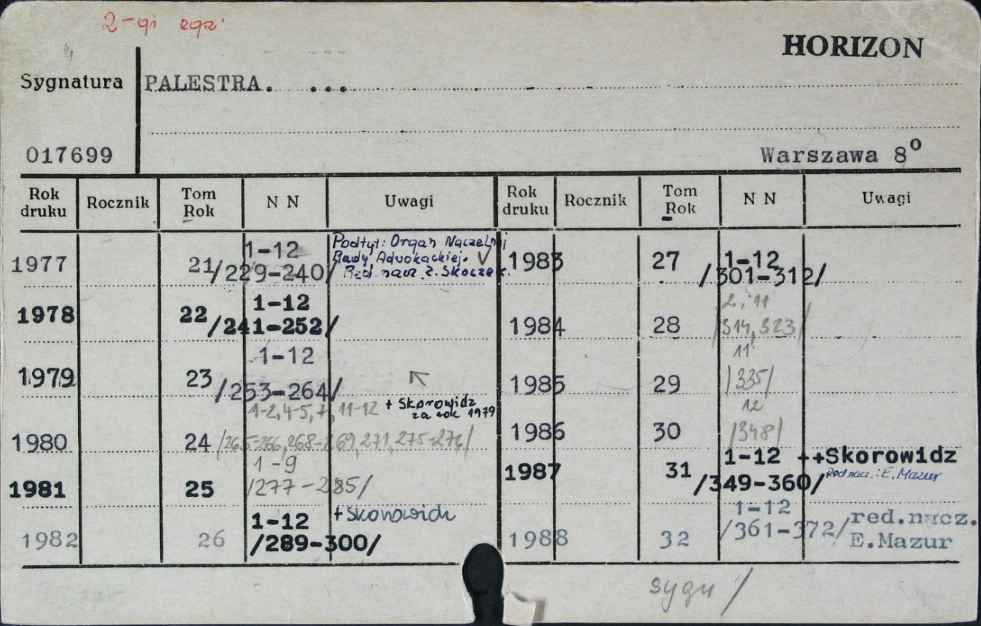 2-gi egz.
HORIZON
Sygnatura PALESTRA. ...
017699
Warszawa 8º
Rok druku Rocznik Tom Rok N N Uwagi Rok druku Rocznik Tom Rok N N Uwagi
1977 21 1-12 /229-240/ Podtyt: Organ Naczelnej Rady Adwokackiej. Red. nacz. Z. Skoczek.
1978 22 1-12 /241-252/
1979 23 1-12 /253-264/
+ Skorowidz za rok 1979
1980 24 1-2,4-5,7,11-12 /265-266,268-269,271,275-276/
1981 25 1-9 /277-285/
1982 26 1-12 /289-300/ + Skorowidz
1983 27 1-12 /301-312/
1984 28 2 i 11 /314,323/
1985 29 11 /335/
1986 30 12 /348/
1987 31 1-12 /349-360/ ++Skorowidz
red. nacz.: E. Mazur
1988 32 1-12 /361-372/ red.nacz. E.Mazur
sygn /